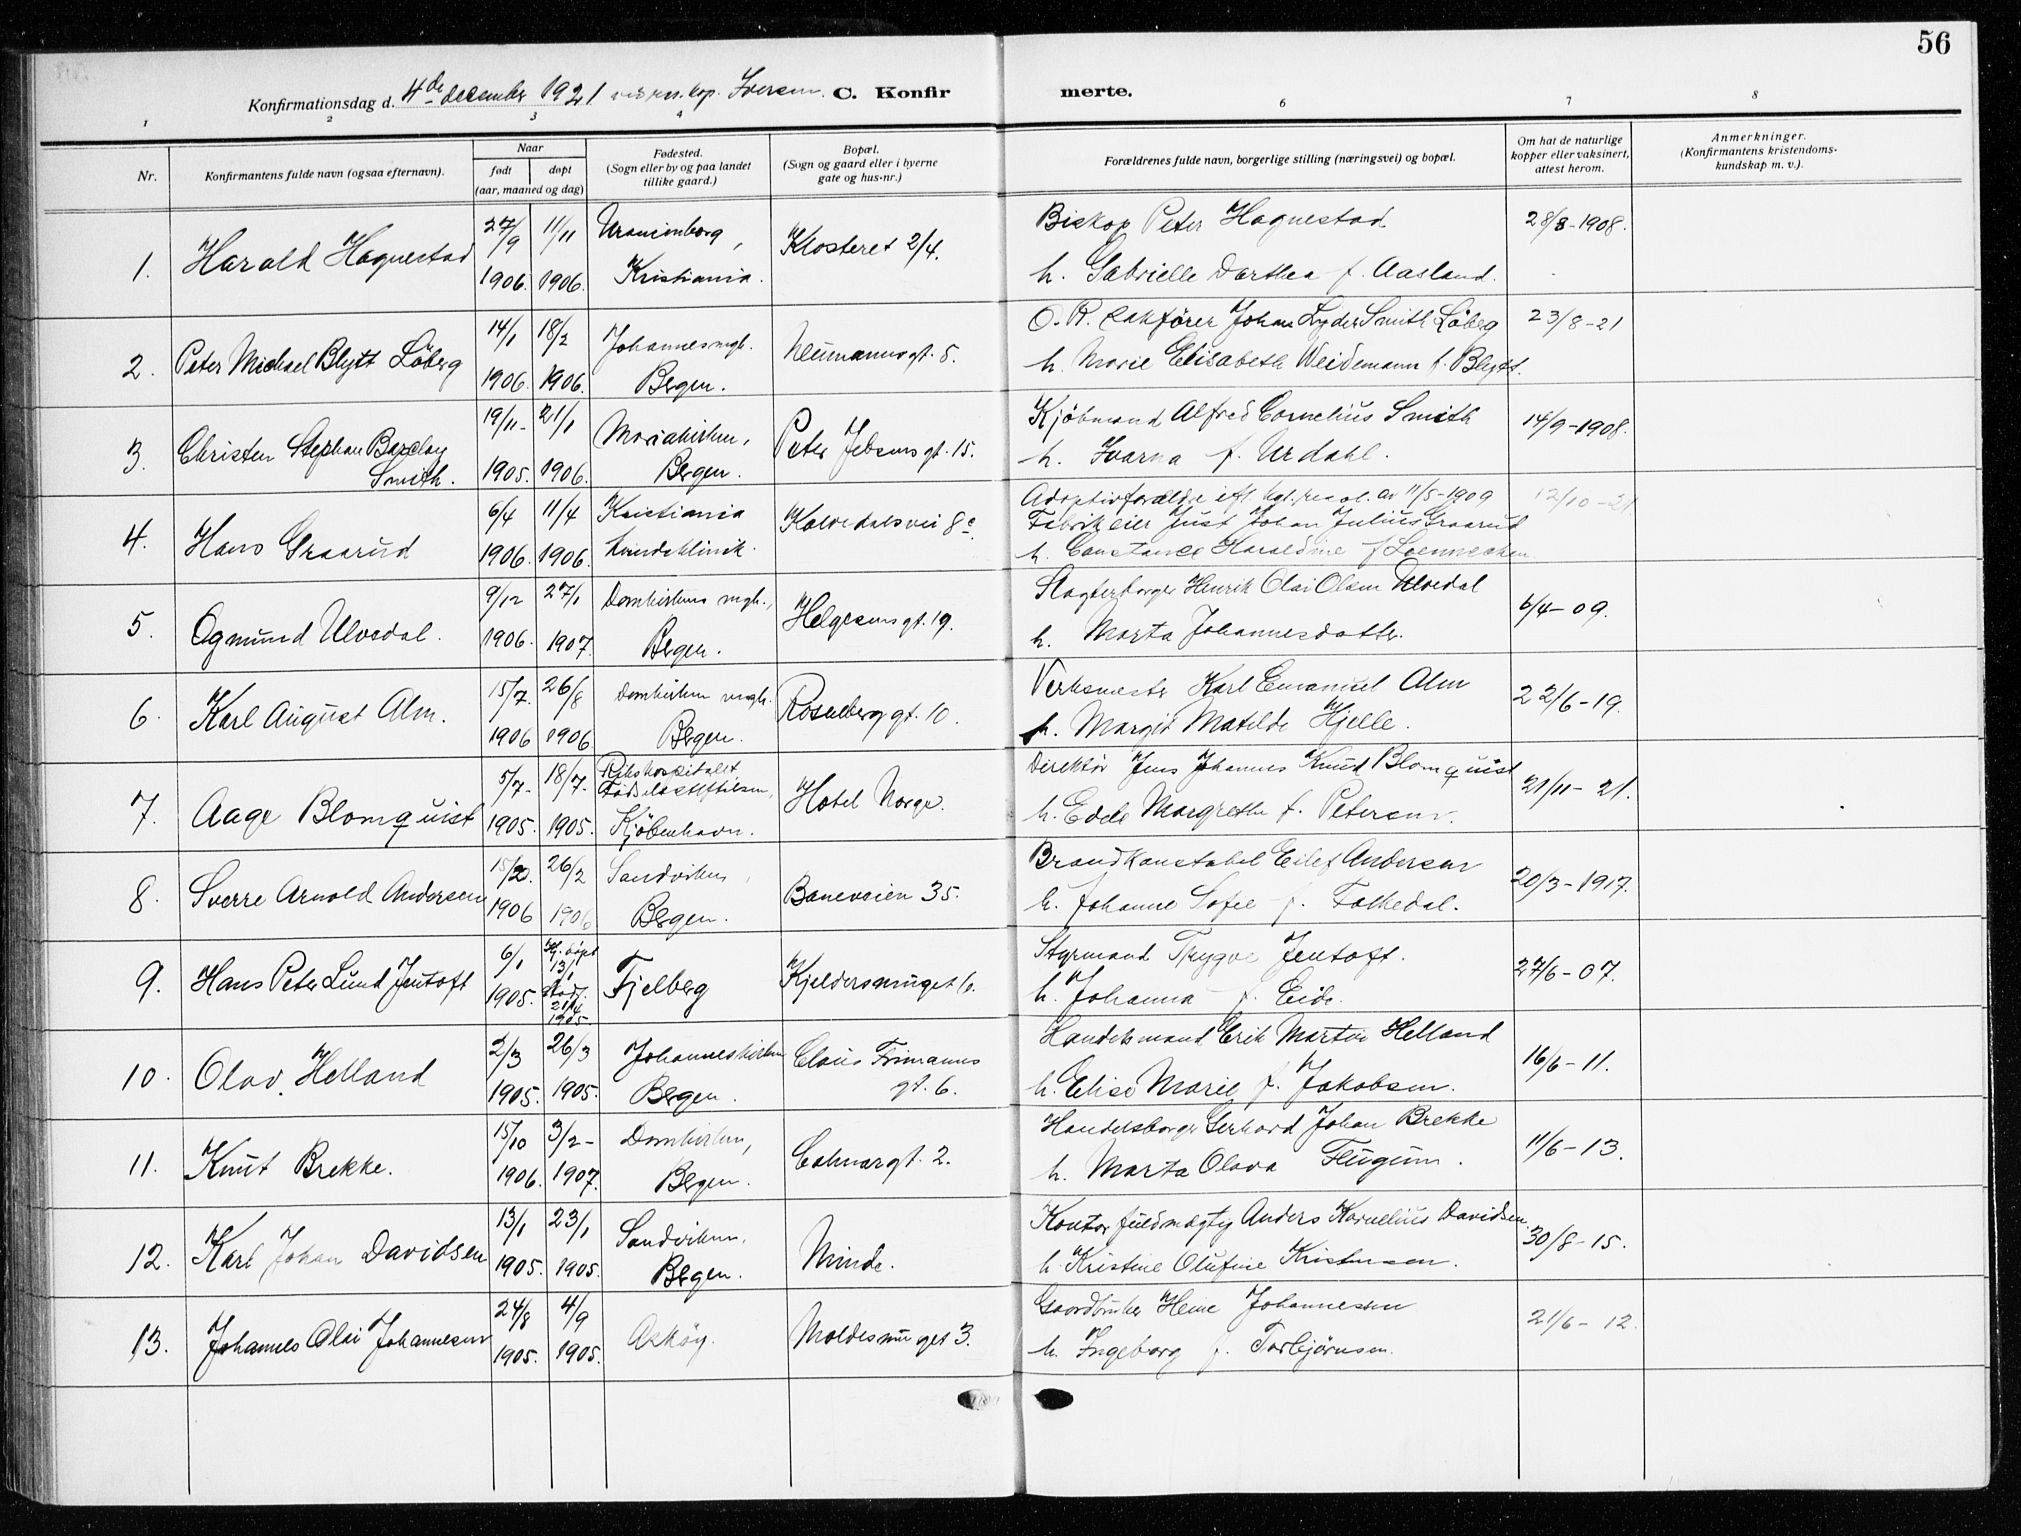 56
Konfirmationsdag d. 4de december 1921 ved res. kap. Iversen. C. Konfirmerte.
1 2 3 4 6 7 8
Nr.
Konfirmantens fulde navn (ogsaa efternavn).
Naar
født døpt
(aar, maaned og dag)
Fødested.
(Sogn eller by og paa landet
tillike gaard.)
Bopæl.
(Sogn og gaard eller i byerne
gate og hus-nr.)
Forældrenes fulde navn, borgerlige stilling (næringsvei) og bopæl.
Om hat de naturlige
kopper eller vaksinert,
attest herom.
Anmerkninger.
(Konfirmantens kristendoms-
kundskap m. v.).
1. Harald Hognestad 27/9 1906. 11/11 1906. Uranienborg, Kristiania. Klosteret 2/4.
Biskop Peter Hognestad
h. Gabrielle Dorthea f. Aasland. 28/8-1908.
2. Peter Michael Blytt Löberg 14/1 1906. 18/2 1906. Johannesmgh. Bergen. Neumannsgt. 5.
O. R. sakfører Johan Lyder Smith Löberg 23/8-21
h. Marie Elisabeth Weidemann f. Blytt.
3. Christen Stephan Barclay
Smith. 19/11- 1905. 21/1 1906. Mariakirken, Bergen. Peter Jebsensgt. 15.
Kjöbmand Alfred Cornelius Smith
h. Ivarna f. Urdahl. 14/9-1908.
4. Hans Graarud 6/4 1906. 11/4 1906. Kristiania Kvindeklinik. Kalvedalsvei 8c.
Adoptivforældre ifl. kgl. res. av 11/5-1909 12/10-21
Fabrikeier Just Johan Julius Graarud
h. Constance Haraldine f. Loennechen
5. Ogmund Ulvedal. 9/12 1906. 27/1 1907. Domkirkens mgh., Bergen. Helgesensgt. 19.
Slagterborger Henrik Olai Olsen Ulvedal
h. Marta Johannesdotter. 6/4-09.
6. Karl August Alm. 15/7. 1906 26/8 1906 Domkirken mgh. Bergen. Rosenberggt. 10.
Verksmester Karl Emanuel Alm
h. Margit Matilde Hjelle. 22/6-19.
7. Aage Blomquist 5/7- 1905. 18/7- 1905. Rikshospitalet Fødselsstiftelsen, Kjöbenhavn. Hotel Norge.
Direktör Jens Johannes Knud Blomquist
h. Edele Margrethe f. Petersen. 21/11-21.
8. Sverre Arnold Andersen 1906 26/2 1906 Sandviken, Bergen. Baneveien 35.
Brandkonstabel Eilef Andersen
h. Johanne Sofie f. Folkedal. 20/3-1917.
9. Hans Peter Lund Jentoft 6/1 1905. hj. døpt 13/1 stadf. 21/4 1905. Fjelberg Kjeldersmuget 6.
Styrmand Trygve Jentoft.
h. Johanna f. Eide. 27/6-07.
10. Olav Helland 2/3 1905. 26/3 1905. Johanneskirken Bergen. Claus Frimanns
gt. 6.
Handelsmand Erik Martin Helland
h. Elise Marie f. Jakobsen. 16/6-11.
11. Knut Brekke. 15/10 1906. 3/2- 1907. Domkirken, Bergen. Edvardsgt. 2.
Handelsborger Gerhard Johan Brekke
h. Marta Olava Flugum. 11/6-13.
12. Karl Johan Davidsen 13/1 1905. 23/1 1905. Sandviken, Bergen. Minde.
Kontorfuldmægtig Anders Kornelius Davidsen.
h. Kristine Olufine Kristensen. 30/8-15.
13. Johannes Olai Johannesen 24/8 1905. 4/9 1905. Askøy. Moldesmuget 3.
Gaardbruker Heine Johannesen
h. Ingeborg f. Torbjørnsen. 21/6-12.